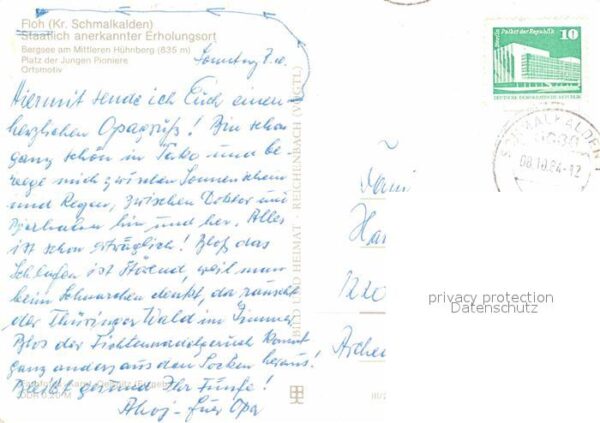 Floh (Kr. Schmalkalden)
Staatlich anerkannter Erholungsort
Bergsee am Mittleren Hühnberg (835 m)
Platz der Jungen Pioniere
Ortsmotiv
Sonntag 7.10.
Hiermit sende ich Euch einen
herzlichen Opagruß! Bin schon
ganz schön in Takt und be
wege mich zwischen Sonnenschein
und Regen, zwischen Doktor und
hin und her. Alles
ist schon erträglich! Bloß das
Schlafen ist störend, weil man
beim Schnarchen denkt, da rauscht
der Thüringer Wald im Zimmer.
Blos der Fichtennadelgeruch kommt
ganz anders aus den Socken heraus!
Bleibt gesund Ihr Fünfe!
Ahoj - Euer Opa
BILD UND HEIMAT · REICHENBACH (VOGTL)
Palast der Republik
10
DEUTSCHE DEMOKRATISCHE REPUBLIK
SCHMALKALDEN 1
6080
08.10.84-12
Fami
Han
1220
privacy protection
Datenschutz